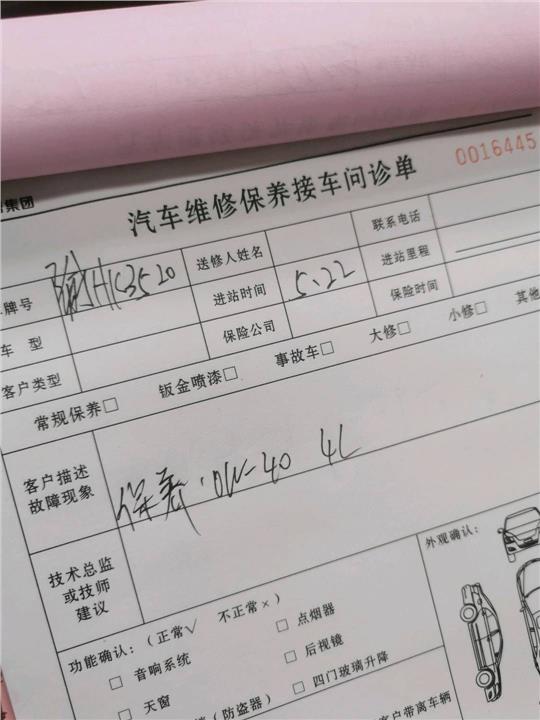 集团
0016445
汽车维修保养接车问诊单
牌号 送修人姓名 联系电话
进站时间 5.22 进站里程
车 型 保险公司 保险时间
客户类型
常规保养□ 钣金喷漆□ 事故车□ 大修□ 小修□ 其他
客户描述
故障现象
保养.0W-40 4L
技术总监
或技师
建议
外观确认：
功能确认：（正常√ 不正常×）
□ 音响系统 □ 点烟器
□ 天窗 □ 后视镜
（防盗器） □ 四门玻璃升降
客户带离车辆